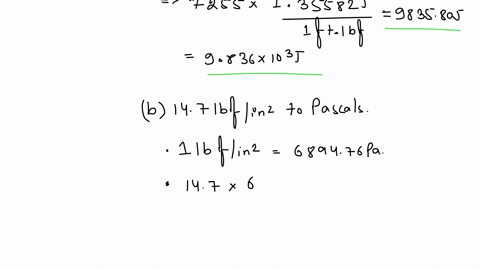 => 7255 x 1.35582J / 1ft.lbf = 9835.80J
= 9.836 x 10³J
(b) 14.7 lbf/in² to Pascals.
• 1 lbf/in² = 6894.76 Pa.
• 14.7 x 6